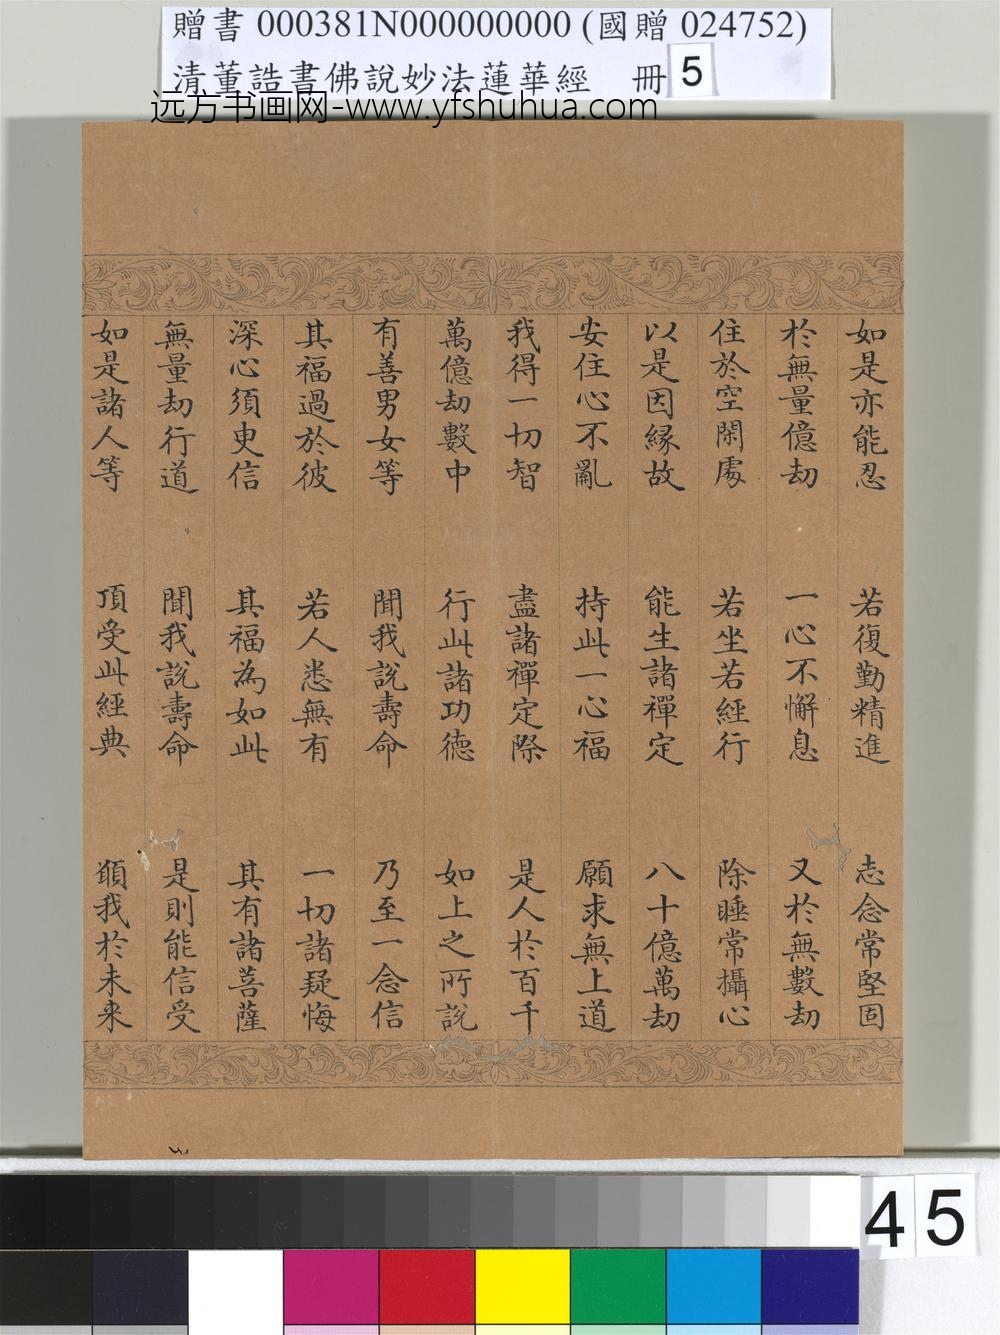 贈書 000381N000000000 (國贈 024752)
清董誥書佛說妙法蓮華經 冊 5
远方书画网-www.yfshuhua.com
如是亦能忍 若復勤精進 志念常堅固
於無量億劫 一心不懈息 又於無數劫
住於空閑處 若坐若經行 除睡常攝心
以是因緣故 能生諸禪定 八十億萬劫
安住心不亂 持此一心福 願求無上道
我得一切智 盡諸禪定際 是人於百千
萬億劫數中 行此諸功德 如上之所說
有善男女等 聞我說壽命 乃至一念信
其福過於彼 若人悉無有 一切諸疑悔
深心須臾信 其福為如此 其有諸菩薩
無量劫行道 聞我說壽命 是則能信受
如是諸人等 頂受此經典 頋我於未来
45